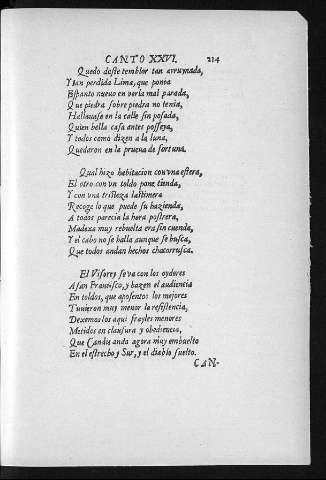 CANTO XXVI. 214
Quedo deste temblor tan arruynada,
Y tan perdida Lima, que ponia
Espanto nueuo en verla mal parada,
Que piedra sobre piedra no tenia,
Hallauase en la calle sin posada,
Quien bella casa antes posseya,
Y todos como dizen a la luna,
Quedaron en la prueua de fortuna.
Qual hizo habitacion con vna estera,
El otro con vn toldo pone tienda,
Y con vna tristeza lastimera
Recoge lo que puede su hazienda,
A todos parecia la hora postrera,
Madexa muy rebuelta era sin cuenda,
Y el cabo no se halla aunque se busca,
Que todos andan hechos chacorrusca.
El Visorey se va con los oydores
A san Francisco, y hazen el audiencia
En toldos, que aposentos los mejores
Tuuieron muy menor la resistencia,
Dexemoslos aqui frayles menores
Metidos en clausura y obediencia,
Que Candis anda agora muy embuelto
En el estrecho y Sur, y el diablo suelto.
CAN-